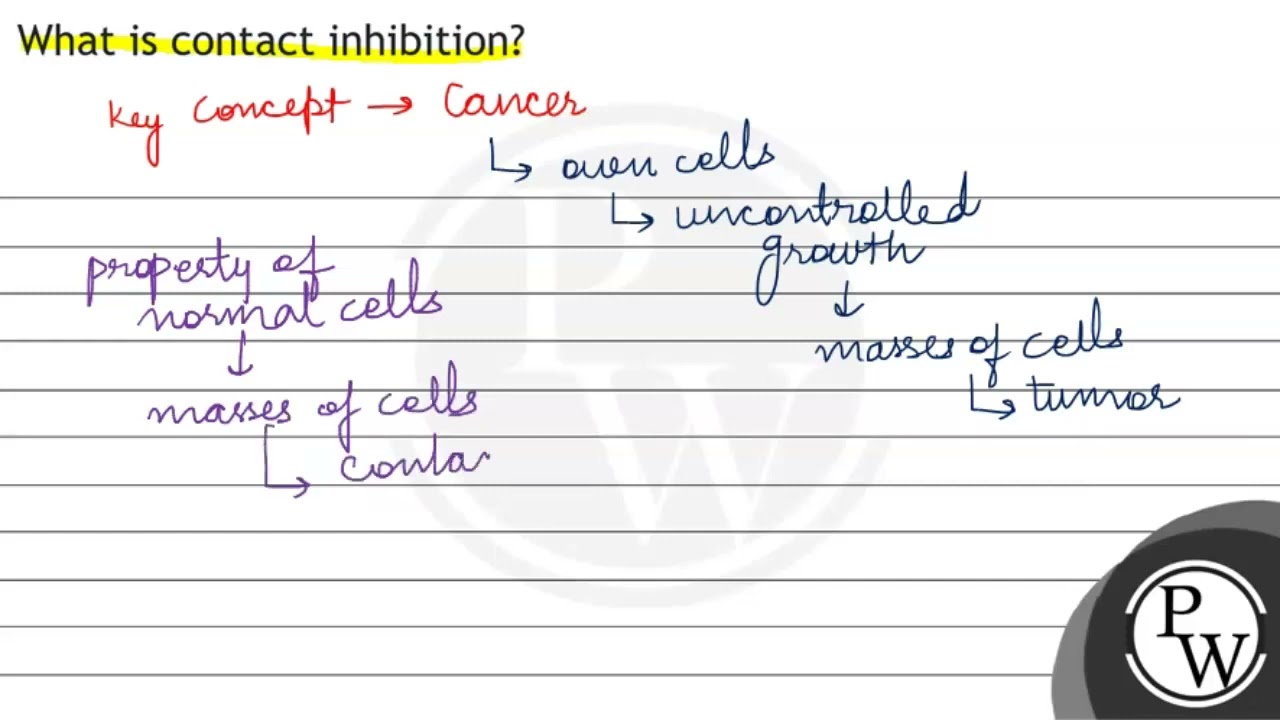 What is contact inhibition?
Key concept → Cancer
↳ own cells
↳ uncontrolled
growth
↓
masses of cells
↳ tumor
property of
normal cells
↓
masses of cells
↳ conta
PW
PW